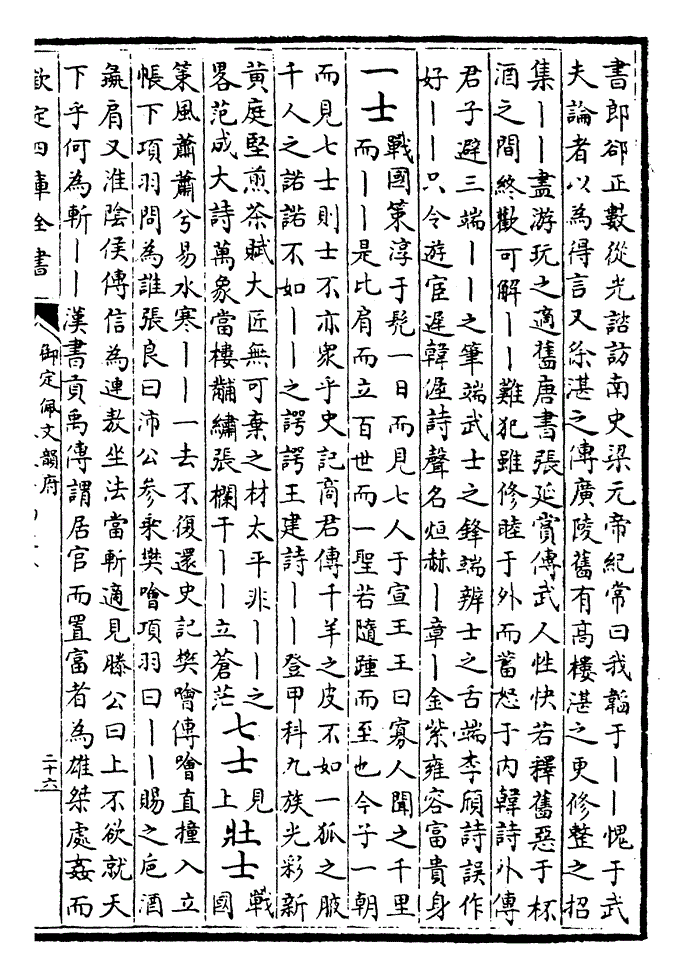 書郎郤正數從光諮訪南史梁元帝紀常曰我韜于丨丨愧于武
夫論者以為得言又徐湛之傳廣陵舊有高樓湛之更修整之招
集丨丨盡游玩之適舊唐書張延賞傳武人性快若釋舊惡于杯
酒之間終歡可解丨丨難犯雖修睦于外而蓄怒于内韓詩外傳
君子避三端丨丨之筆端武士之鋒端辨士之舌端李頎詩誤作
好丨丨只令遊宦遲韓渥詩聲名烜赫丨章丨金紫雍容富貴身
一士
戰國策淳于髡一日而見七人于宣王王曰寡人聞之千里
而丨丨是比肩而立百世而一聖若隨踵而至也今子一朝
而見七士則士不亦衆乎史記商君傳千羊之皮不如一狐之腋
千人之諾諾不如丨丨之諤諤王建詩丨丨登甲科九族光彩新
黄庭堅煎茶賦大匠無可棄之材太平非丨丨之
畧范成大詩萬象當樓黼繡張欄干丨丨立蒼茫
七士
見
上
壯士
戰
國
策風蕭蕭兮易水寒丨丨一去不復還史記樊噲傳噲直撞入立
帳下項羽問為誰張良曰沛公參乗樊噲項羽曰丨丨賜之巵酒
彘肩又淮隂侯傳信為連敖坐法當斬適見滕公曰上不欲就天
下乎何為斬丨丨漢書貢禹傳謂居官而置富者為雄桀處姦而
欽定四庫全書
御定佩文韻府
二十六